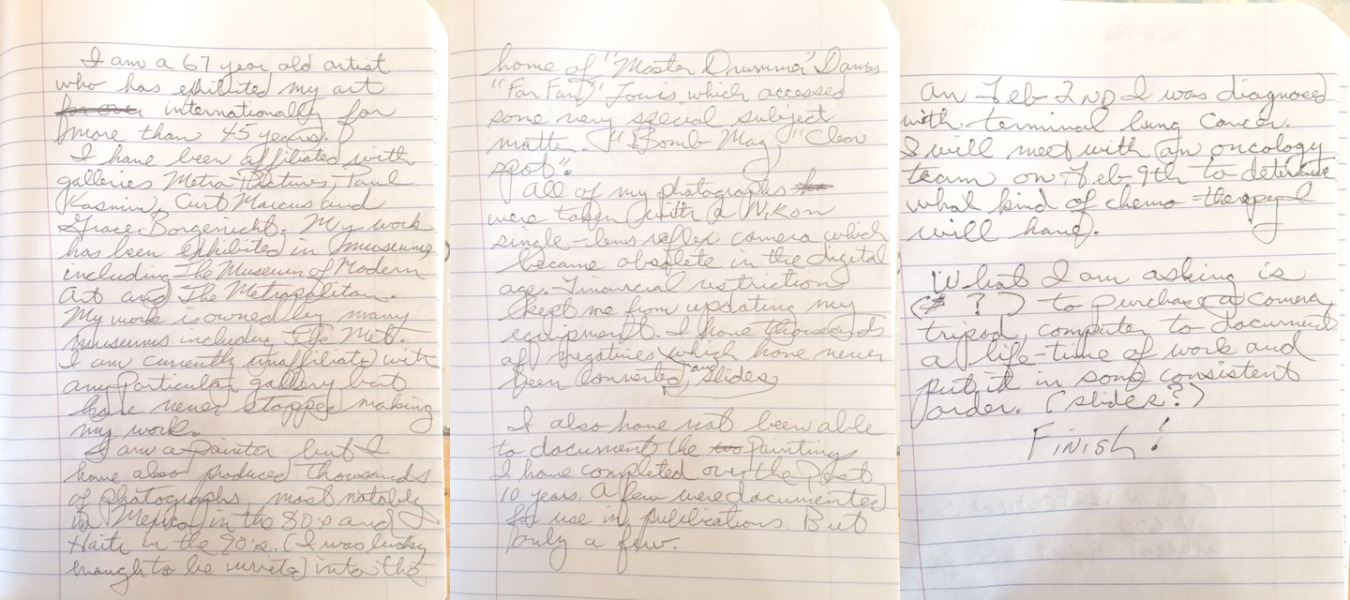 I am a 67 year old artist
who has exhibited my art
for over internationally for
more than 45 years.
I have been affiliated with
galleries Metro Pictures, Paul
Kasmin, Curt Marcus and
Grace Borgenicht. My work
has been exhibited in museums
including The Museum of Modern
Art and The Metropolitan.
My work is owned by many
museums including The Met.
I am currently unaffiliated with
any particular gallery but
have never stopped making
my work.
I am a painter but I
have also produced thousands
of photographs, most notably
in Mexico in the 80's and
Haiti in the 90's. (I was lucky
enough to be invited into the
home of "Master Drummer"
"Fan Fan" Louis which accessed
some very special subject
matter. "Bomb Mag," "Clear
spot".
All of my photographs
were taken with a Nikon
single-lens reflex camera which
became obsolete in the digital
age. Financial restrictions
kept me from updating my
equipment. I have thousands
of negatives which have never
been converted, and slides
I also have not been able
to document the paintings
I have completed over the past
10 years. A few were documented
for use in publications But
only a few.
on Feb 2ND I was diagnosed
with terminal lung cancer.
I will meet with an oncology
team on Feb 9th to determine
what kind of chemo-therapy I
will have.
What I am asking is
($ ? ) to purchase a camera,
tripod, computer to document
a life-time of work and
put it in some consistent
order. (slides?)
FINISH!